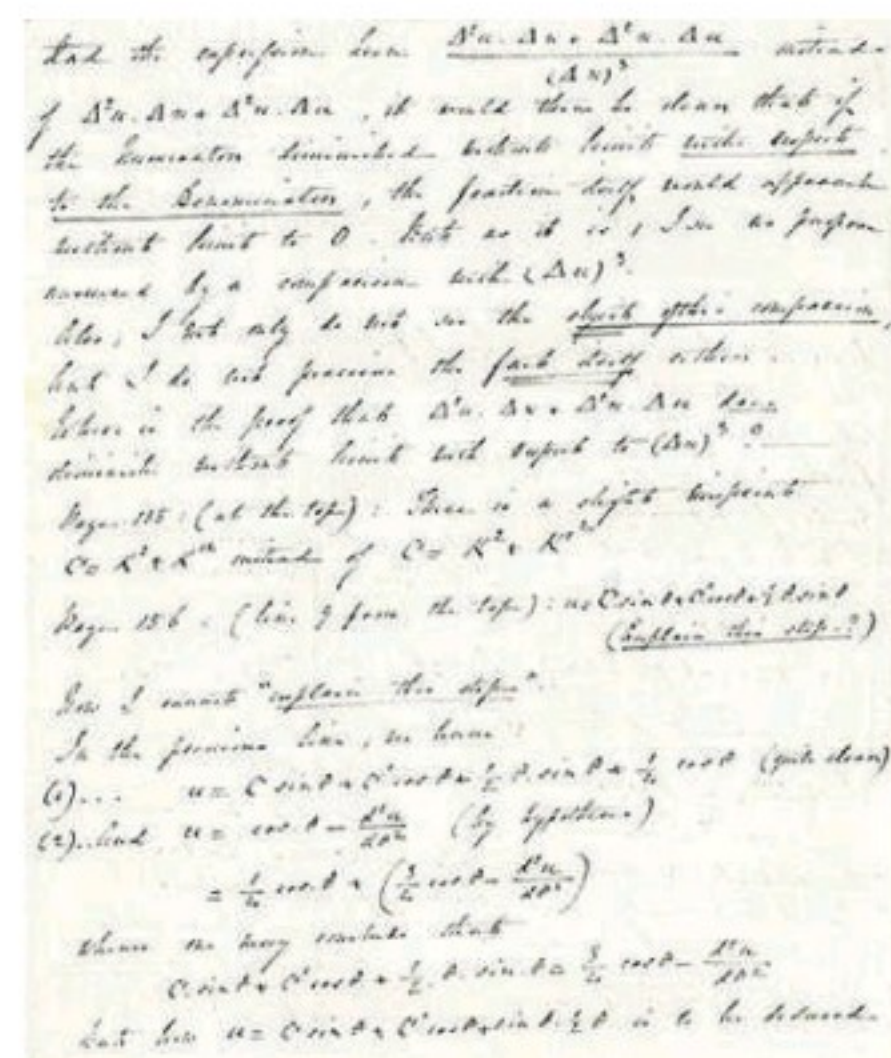 Had the expression been Δ²u.Δx + Δ²x.Δu / (Δx)³ instead
of Δ²u.Δx + Δ²x.Δu, it would then be clear that if
the Numerator diminished without limit with respect
to the Denominator, the fraction itself would approach
without limit to 0. But as it is, I see no purpose
answered by a comparison with (Δx)³.
Also, I not only do not see the object of this comparison,
but I do not perceive the fact itself either.
Where is the proof that Δ²u.Δx + Δ²x.Δu does
diminish without limit with respect to (Δx)³?
Page 155: (at the top): There is a slight misprint
C = K² + K'² instead of C = K² + K'²
Page 156: (line 9 from the top): u = C sin θ + C' cos θ + ½ θ.sin θ
(Explain this step?)
Now I cannot "explain this step".
In the previous line, we have:
(1)... u = C sin θ + C' cos θ + ½ θ.sin θ + ¼ cos θ (quite clear)
(2)..And u = cos. θ - d²u/dθ² (by hypothesis)
= ¼ cos. θ + (¾ cos θ - d²u/dθ²)
whence one may conclude that
C.sin θ + C' cos θ + ½ θ.sin. θ = ¾ cos θ - d²u/dθ²
But how u = C sin θ + C' cos θ + sin θ.½ θ is to be deduced